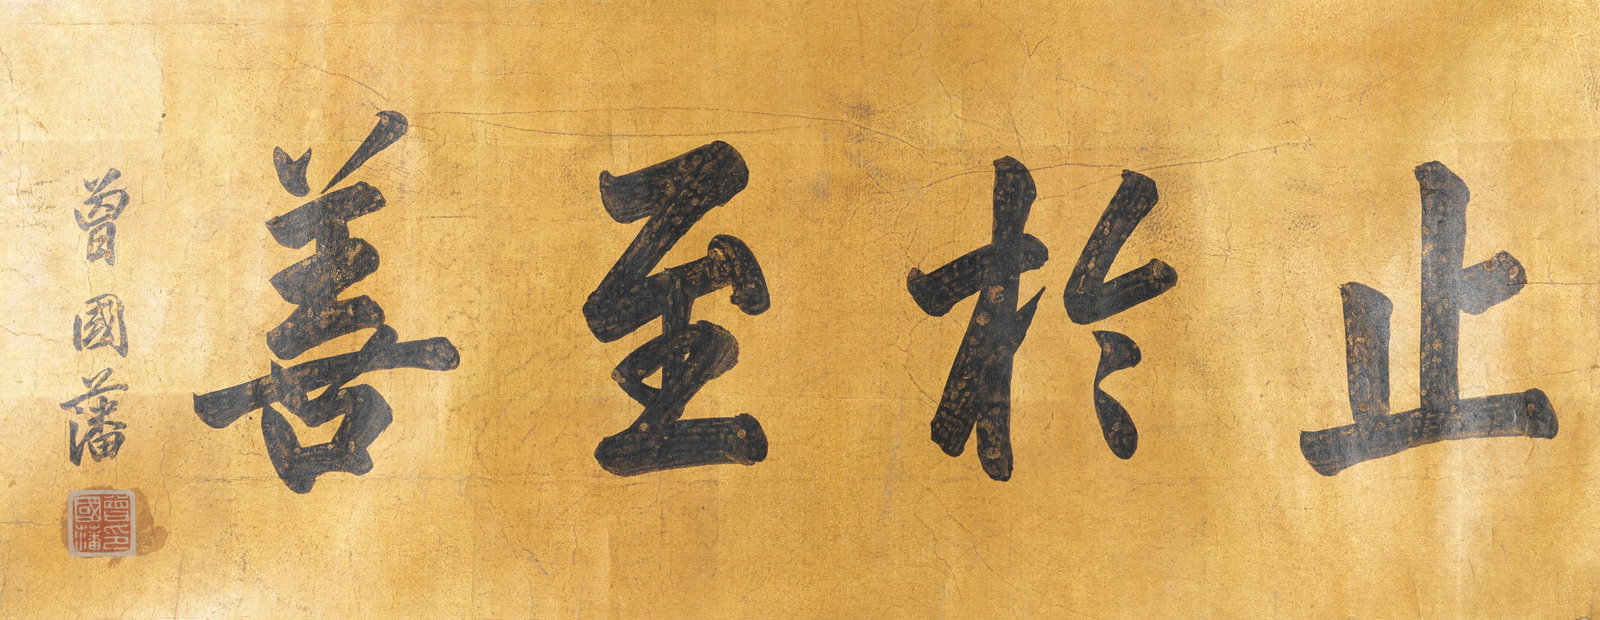 止於至善
曾國藩
曾國藩印